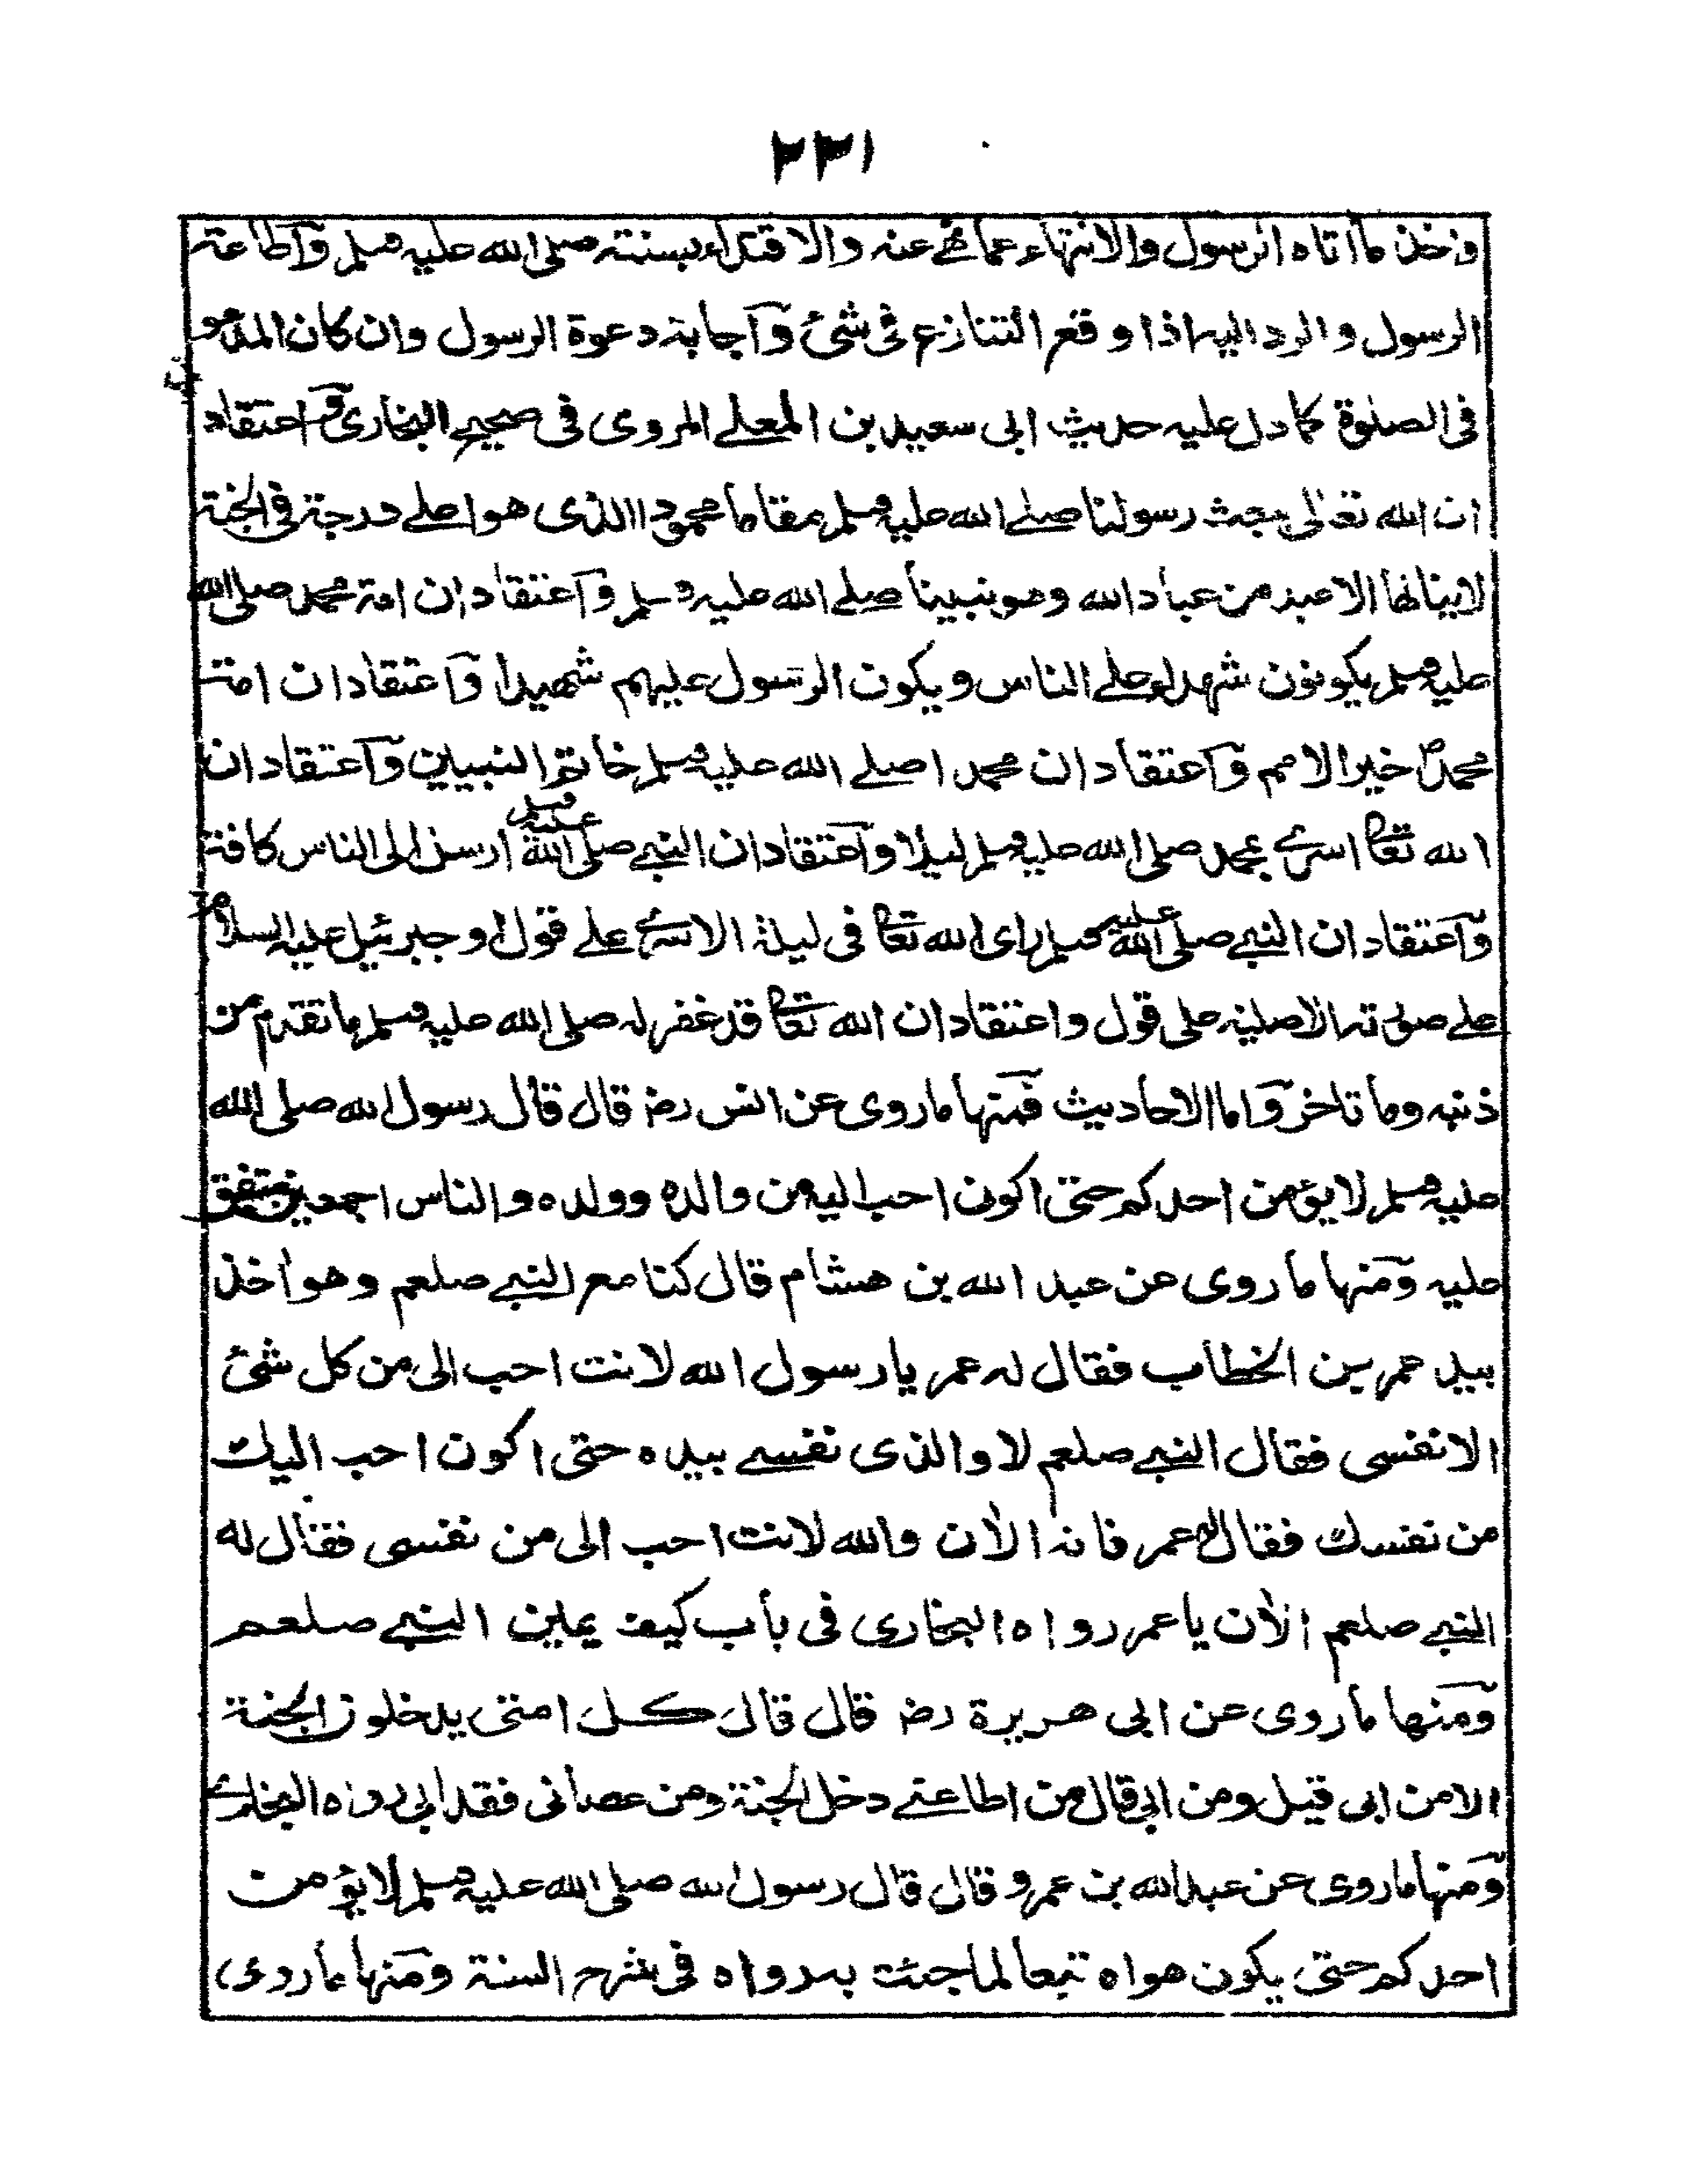 ٢٣١
واخذ ما أتاه الرسول والانتهاء عما نهے عنه والاقتداء بسنته صلى الله عليه وسلم وآطاعة
الرسول والرد اليه اذا وقع التنازع فى شئ وآجابة دعوة الرسول وان كان المدعو
فى الصلوة كما دل عليه حديث ابى سعيد بن المعلے المروى فى صحيح البخارى وآعتقاد
ان الله تعالى يبعث رسولنا صلے الله عليه وسلم مقاما محمودا الذى هو اعلے درجة فى الجنة
لا ينالها الا عبد من عباد الله وهو نبينا صلے الله عليه وسلم وآعتقاد ان امة محمد صلى الله
عليه وسلم يكونون شهداء علے الناس ويكون الرسول عليهم شهيدا وآعتقاد ان امة
محمدؐ خير الامم وآعتقاد ان محمدا صلے الله عليه وسلم خاتم النبيين وآعتقاد ان
الله تعا اسرے بمحمد صلى الله عليه وسلم ليلا وآعتقاد ان النبے صلى الله عليه وسلم ارسل الى الناس كافة
وآعتقاد ان النبے صلى الله عليه وسلم راى الله تعا فى ليلة الاسرے علے قول او جبرئيل عليه السلام
علے صورته الاصلية على قول واعتقاد ان الله تعا قد غفر له صلى الله عليه وسلم ما تقدم من
ذنبه وما تاخر وآما الاحاديث فمنها ما روى عن انس رضـ قال قال رسول الله صلى الله
عليه وسلم لا يؤمن احدكم حتى اكون احب اليه من والده وولده والناس اجمعين متفق
عليه ومنها ما روى عن عبد الله بن هشام قال كنا مع النبے صلعم وهو اخذ
بيد عمر بن الخطاب فقال له عمر يا رسول الله لانت احب الى من كل شئ
الا نفسى فقال النبے صلعم لا والذى نفسے بيده حتى اكون احب اليك
من نفسك فقال له عمر فانه الأن والله لانت احب الى من نفسى فقال له
النبے صلعم الأن يا عمر رواه البخارى فى باب كيف يمين النبے صلعم
ومنها ما روى عن ابى هريرة رضـ قال قال كل امتى يدخلون الجنة
الا من ابى قيل ومن ابى قال من اطاعنے دخل الجنة ومن عصانى فقد ابى رواه البخارے
ومنها ما روى عن عبد الله بن عمرو قال قال رسول الله صلى الله عليه وسلم لا يؤمن
احدكم حتى يكون هواه تبعا لما جئت به رواه فى شرح السنة ومنها ما روى